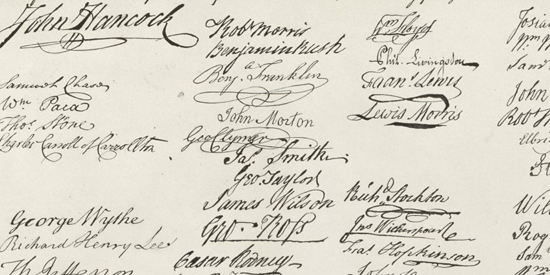 John Hancock
Samuel Chase
Wm. Paca
Thos. Stone
Charles Carroll of Carrollton
George Wythe
Richard Henry Lee
Th Jefferson
Robt Morris
Benjamin Rush
Benj. Franklin
John Morton
Geo Clymer
Jas. Smith
Geo. Taylor
James Wilson
Geo. Ross
Caesar Rodney
Wm Floyd
Phil. Livingston
Frans. Lewis
Lewis Morris
Richd. Stockton
Jno Witherspoon
Fras. Hopkinson
John
Josia
Wm
Sam
John
Robt
Elbri
Wil
Rog
Sam
Wm